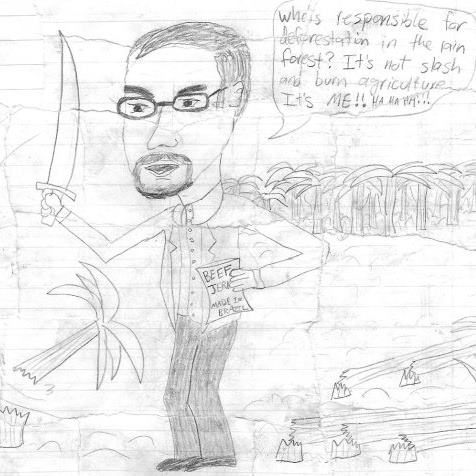 who's responsible for
deforestation in the rain
forest? It's not slash
and burn agriculture
It's ME!! HA HA HA!!!
BEEF
JERK
MADE IN
BRAZIL